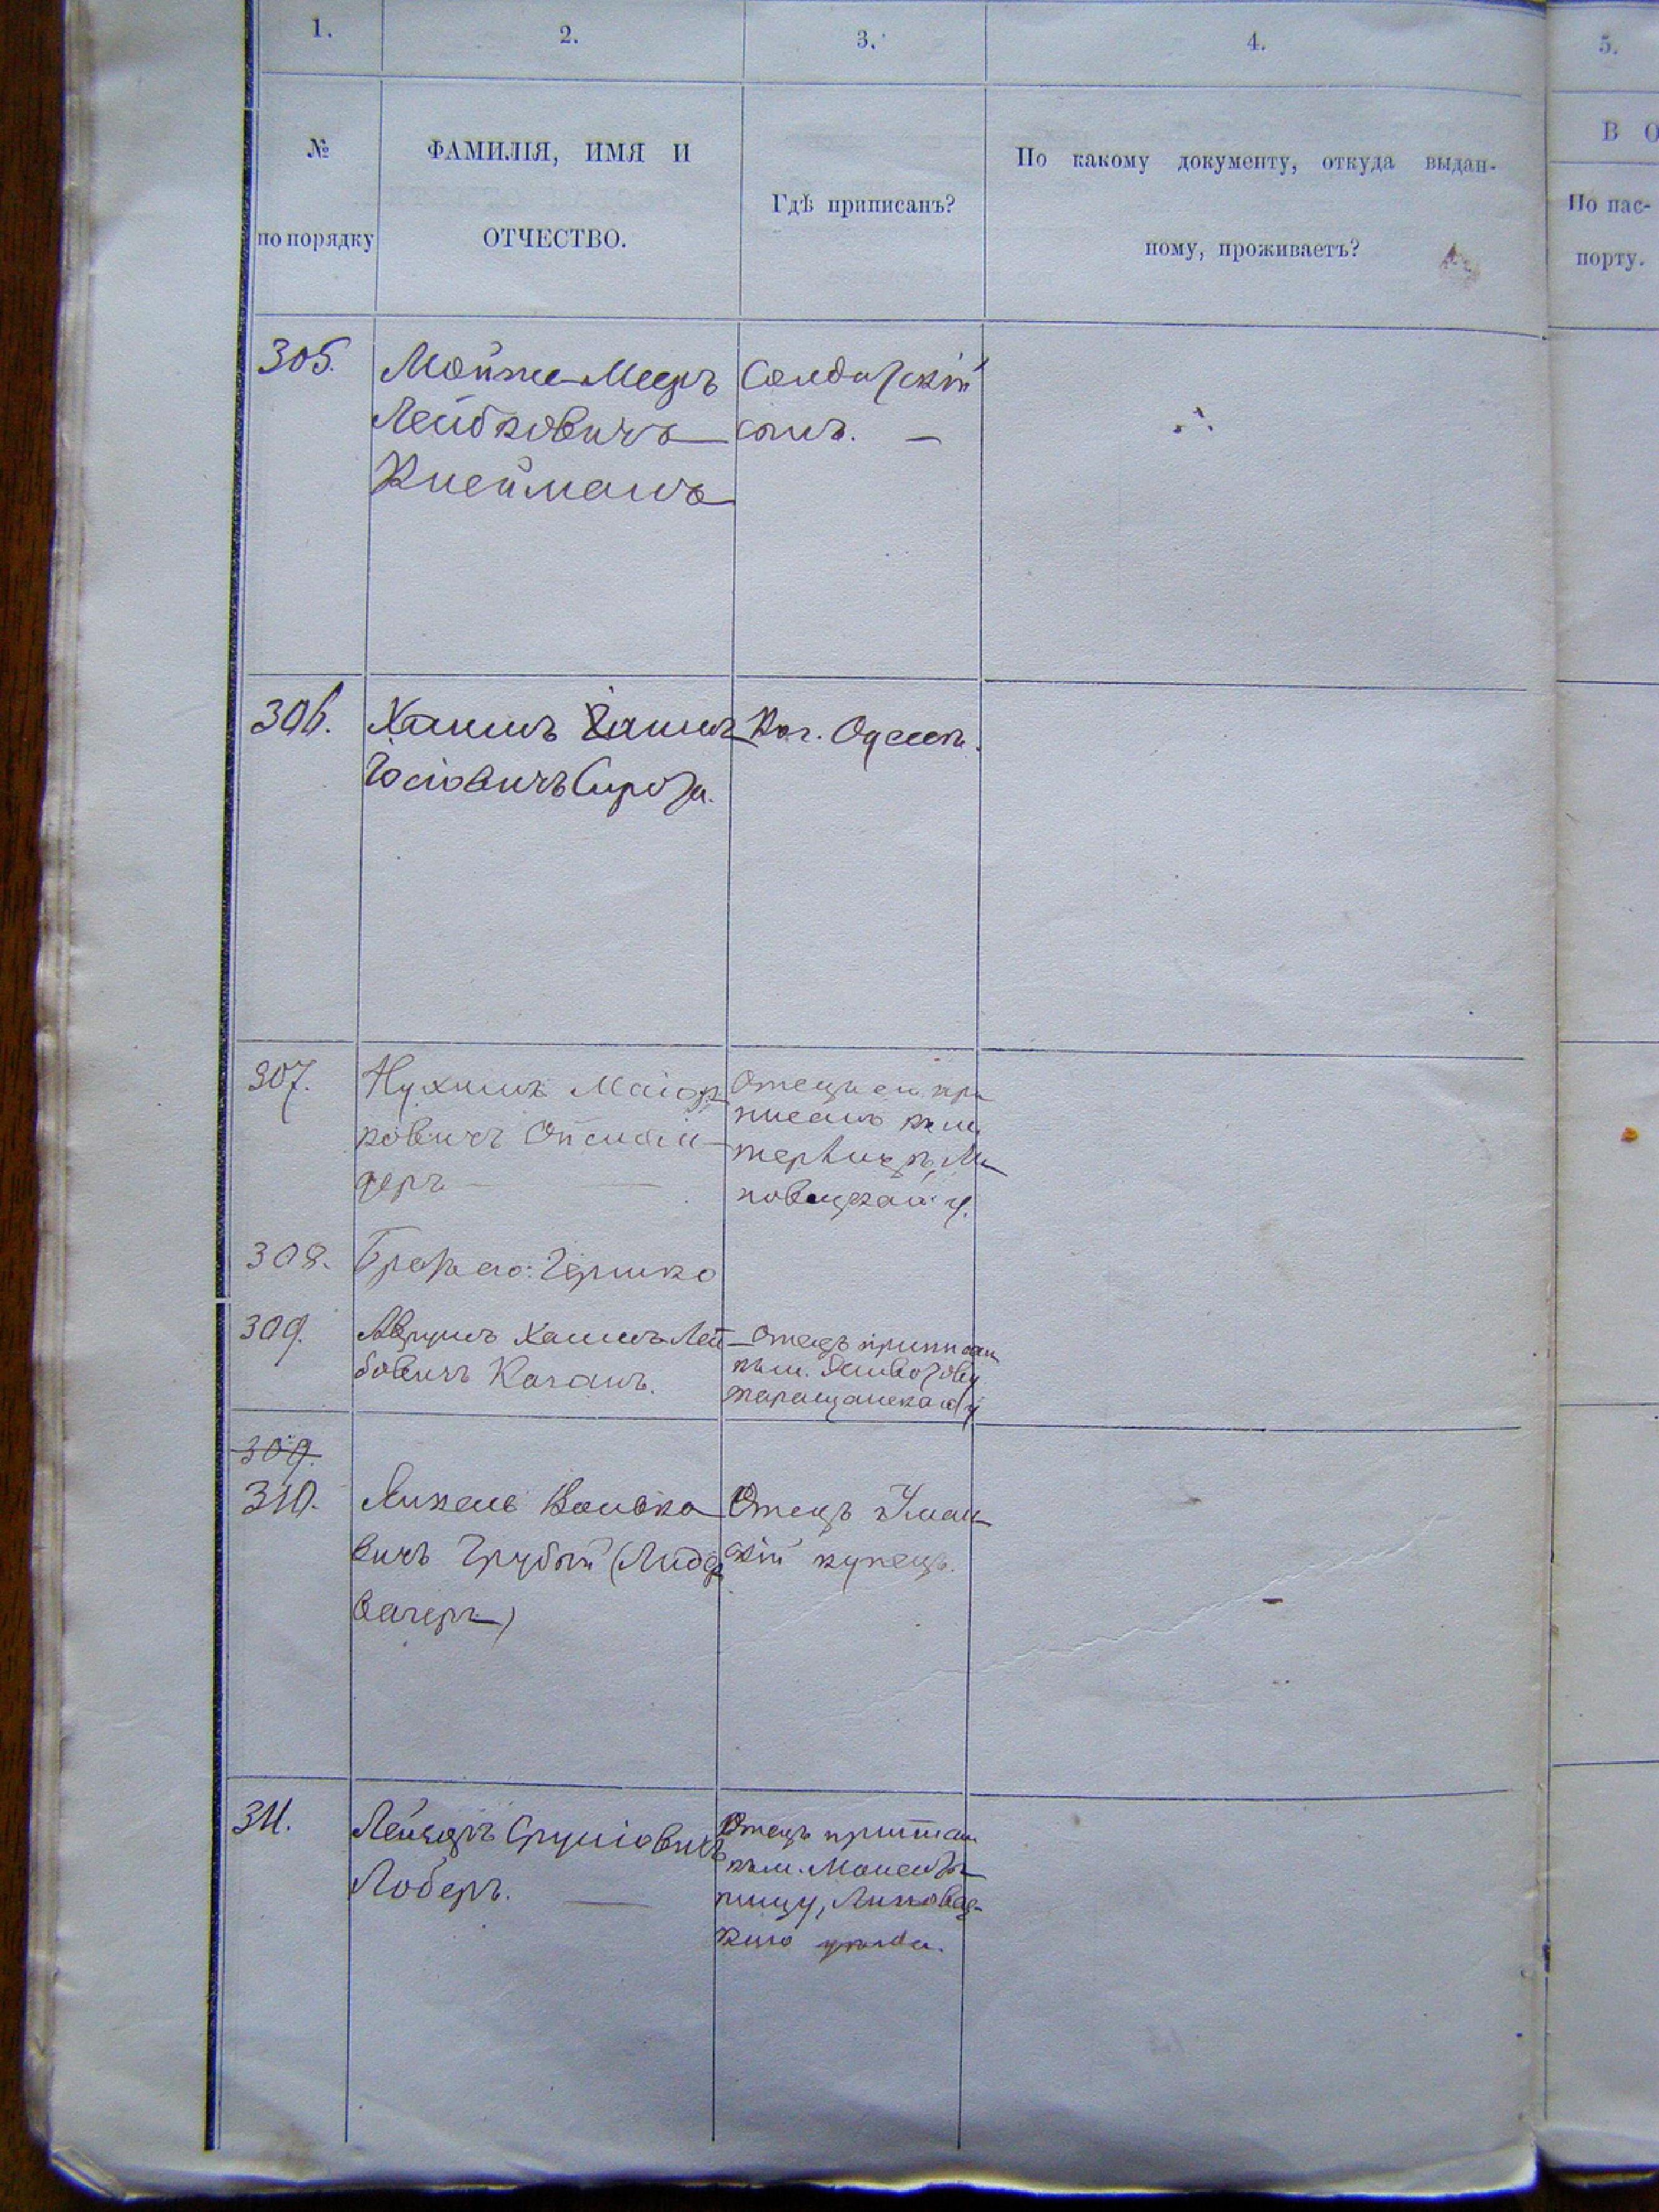 1.
2.
3.
4.
5.
№
по порядку
ФАМИЛІЯ, ИМЯ И
ОТЧЕСТВО.
Гдѣ приписанъ?
По какому документу, откуда выдан-
ному, проживаетъ?
В О
По пас-
порту.
305.
Мойше-Мееръ
Лейбковичъ
Клейманъ
Солдатскій
сынъ. —
306.
Хаимъ
Іосіовичъ Сирота.
Одесск.
307.
Нухимъ
ковичъ
деръ
Отецъ его при
писанъ къ м.
Ли
повецкаго у.
308.
Братъ его: Гершко
309.
Аврумъ Хаимъ-Лей
бовичъ Каганъ.
Отецъ приписан
къ м. Животову
таращанскаго у
309.
310.
Янкель Волько
вичъ Грубый (Лидф
вагеръ)
Отецъ Уман
скій купецъ.
311.
Лейзеръ Сруліовичъ
Лоберъ.
Отецъ приписан
къ м. Монасты
рищу, Липовец-
каго уѣзда.